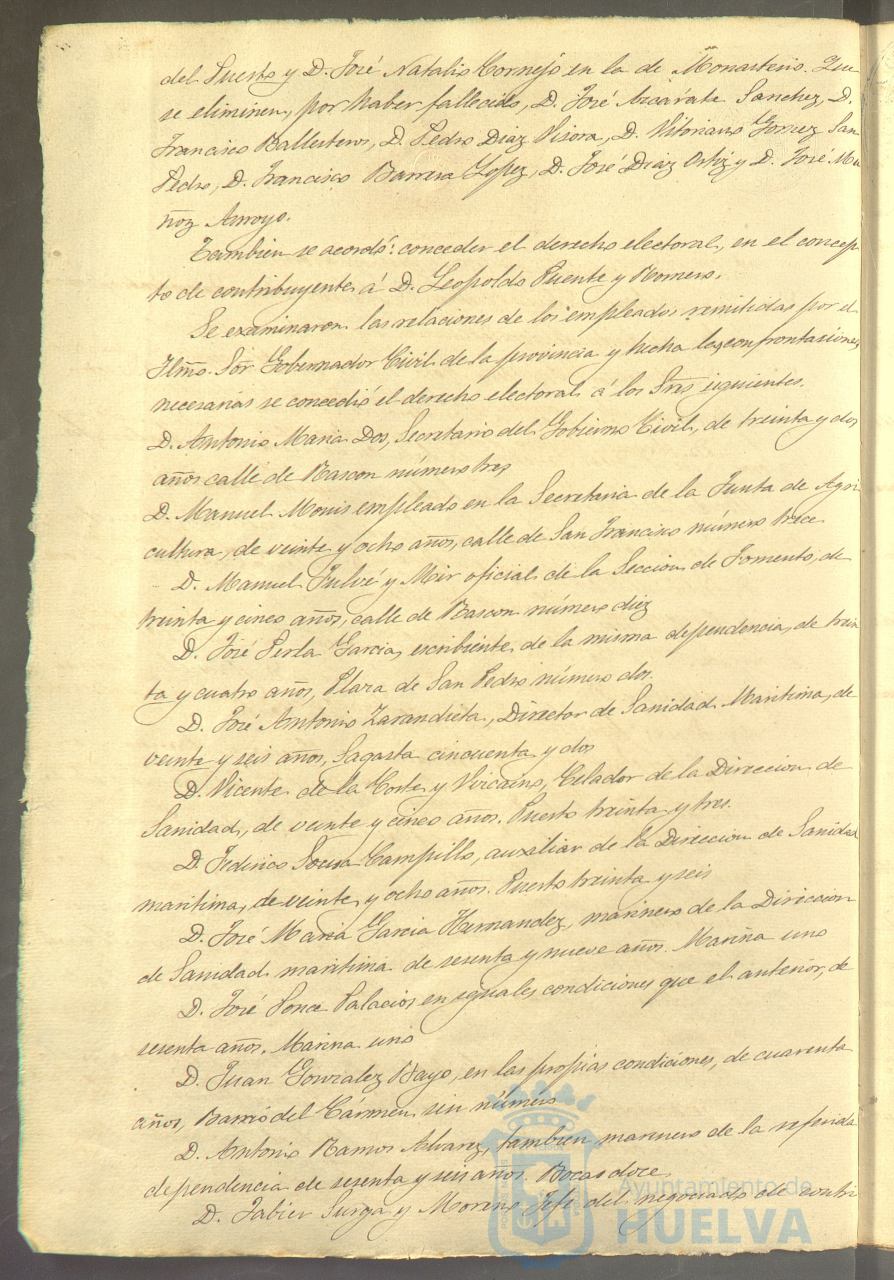 del Puerto y D. José Natalio Cornejo en la de Monasterio. Que
se eliminen, por haber fallecido, D. José Azcárate Sanchez, D.
Francisco Ballesteros, D. Pedro Diaz Visora, D. Vitoriano Gomez San
Pedro, D. Francisco Barrera Lopez, D. José Diaz Ortiz y D. José Mu
ñoz Arroyo.
Tambien se acordó: conceder el derecho electoral, en el concep
to de contribuyente á D. Leopoldo Puente y Romero.
Se examinaron las relaciones de los empleados remitidas por el
Ilmo. Sor Gobernador Civil de la provincia y hecha las confrontasiones
necesarias se concedió el derecho electoral á los Sres siguientes.
D. Antonio Maria Dos, Secretario del Gobierno Civil, de treinta y dos
años calle de Rascon número tres
D. Manuel Monis empleado en la Secretaria de la Junta de Agri
cultura, de veinte y ocho años, calle de San Francisco número trece
D. Manuel Julvé y Mir oficial de la Seccion de Fomento, de
treinta y cinco años, calle de Rascon número diez
D. José Perla Garcia, escribiente de la misma dependencia, de trein
ta y cuatro años, Plaza de San Pedro número dos.
D. José Antonio Zarandieta, Director de Sanidad Maritima, de
veinte y seis años, Sagasta cincuenta y dos
D. Vicente de la Corte y Vizcaino, Celador de la Direccion de
Sanidad, de veinte y cinco años. Puerto treinta y tres.
D. Federico Sousa Campillo, auxiliar de la Direccion de Sanidad
maritima, de veinte y ocho años. Puerto treinta y seis
D. José Maria Garcia Hernandez, marinero de la Direccion
de Sanidad maritima de sesenta y nueve años. Marina uno
D. José Ponce Palacios en yguales condiciones que el anterior, de
sesenta años. Marina uno
D. Juan Gonzalez Bayo, en las propias condiciones, de cuarenta
años, Barrio del Cármen sin número
D. Antonio Ramos Alvarez, tambien marinero de la referida
dependencia de sesenta y seis años. Bocas doce
D. Jabier Surga y Moreno Jefe del negociado de contri
Ayuntamiento de
HUELVA